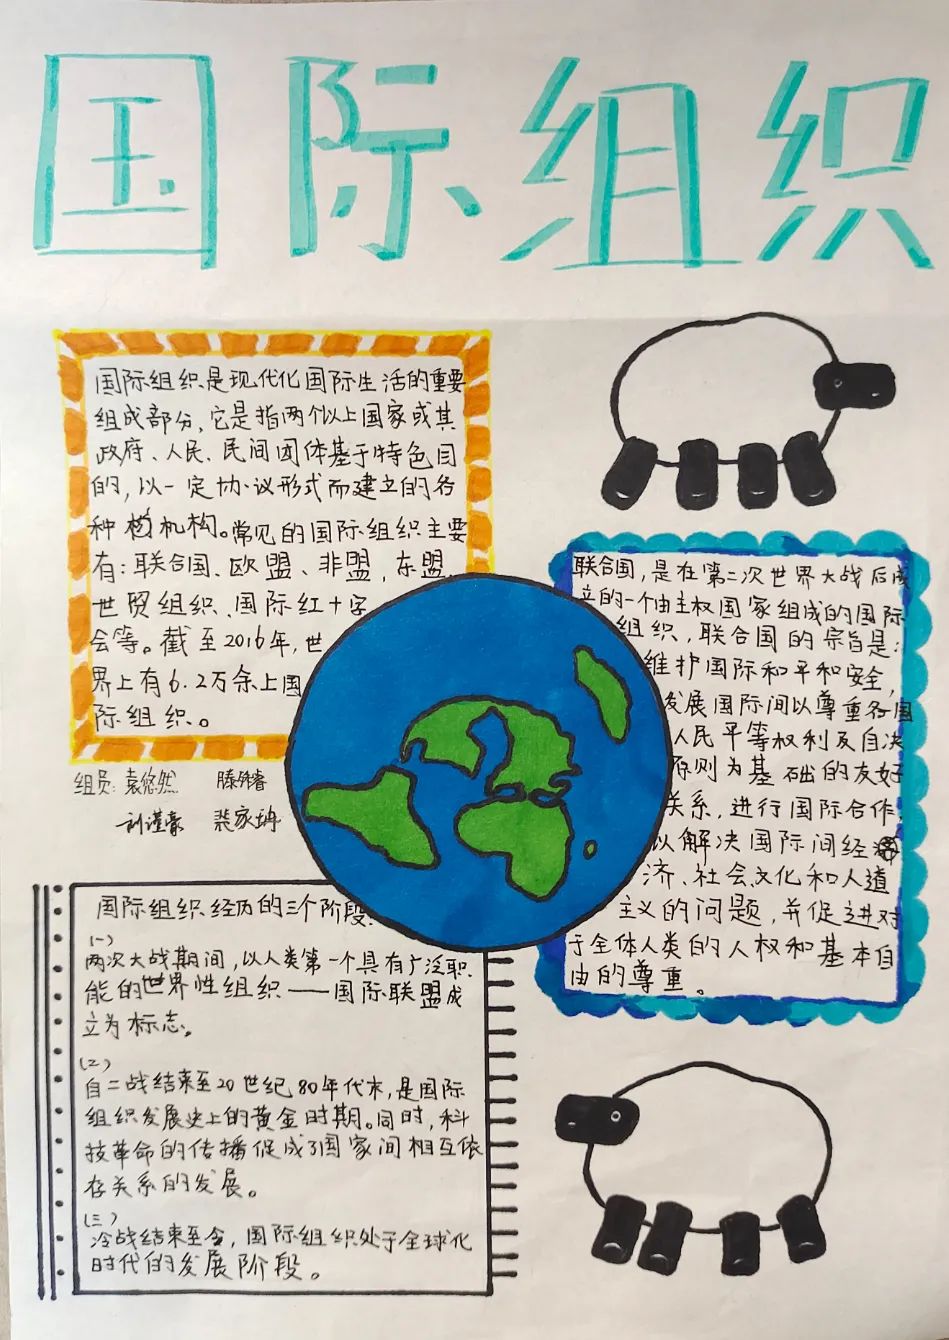 国际组织
国际组织是现代化国际生活的重要
组成部分，它是指两个以上国家或其
政府、人民、民间团体基于特色目
的，以一定协议形式而建立的各
种机构。常见的国际组织主要
有：联合国、欧盟、非盟，东盟、
世贸组织、国际红十字
会等。截至2016年，世
界上有6.2万余上国
际组织。
组员：袁悠然
刘谨豪
联合国，是在第二次世界大战后成
立的一个由主权国家组成的国际
组织，联合国的宗旨是：
维护国际和平和安全，
发展国际间以尊重各国
人民平等权利及自决
原则为基础的友好
关系，进行国际合作，
以解决国际间经
济、社会、文化和人道
主义的问题，并促进对
于全体人类的人权和基本自
由的尊重。
国际组织经历的三个阶段：
(一)
两次大战期间，以人类第一个具有广泛职
能的世界性组织——国际联盟成
立为标志。
(二)
自二战结束至20世纪80年代末，是国际
组织发展史上的黄金时期。同时，科
技革命的传播促成了国家间相互依
存关系的发展。
(三)
冷战结束至今，国际组织处于全球化
时代的发展阶段。